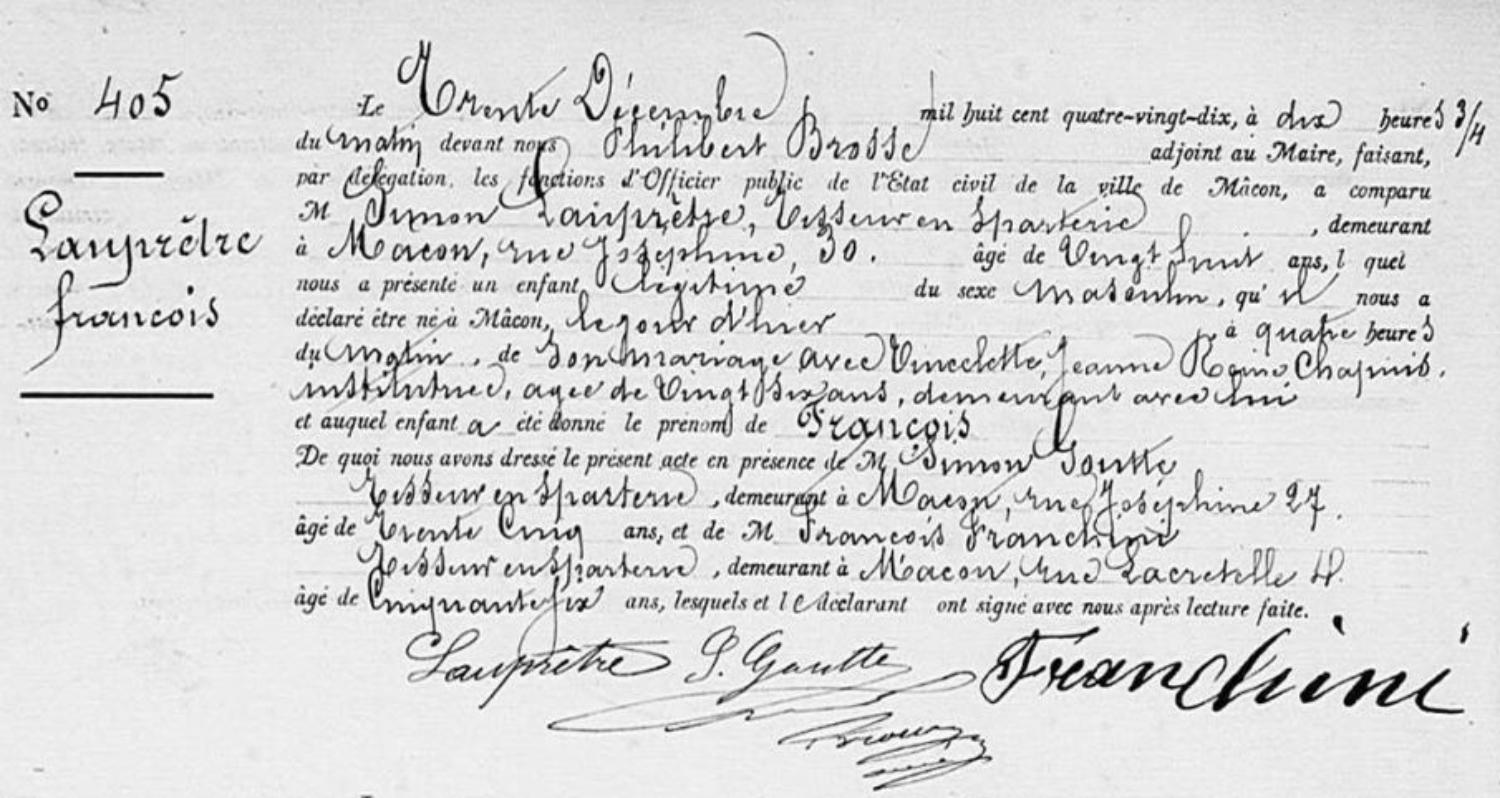 No 405
Lauprêtre
françois
Le Trente Décembre mil huit cent quatre-vingt-dix, à dix heures 3/4
du matin devant nous Philibert Brosse adjoint au Maire, faisant,
par délégation, les fonctions d'Officier public de l'Etat civil de la ville de Mâcon, a comparu
M Simon Lauprêtre, Tisseur en Sparterie, demeurant
à Macon, rue Joséphine, 30. âgé de Vingt huit ans, lequel
nous a présenté un enfant légitime du sexe masculin, qu'il nous a
déclaré être né à Mâcon, le jour d'hier à quatre heures
du matin, de Son mariage avec Vincelette, Jeanne Reine Chapuis.
institutrice, agée de Vingt Six ans, demeurant avec lui
et auquel enfant a été donné le prénom de François
De quoi nous avons dressé le présent acte en présence de M Simon Goutte
Tisseur en Sparterie, demeurant à Macon, rue Joséphine 27.
âgé de Trente Cinq ans, et de M François Franchini
Tisseur en Sparterie, demeurant à Macon, rue Lacretelle
âgé de Cinquante Six ans, lesquels et le déclarant ont signé avec nous après lecture faite.
Lauprêtre S. Goutte Franchini